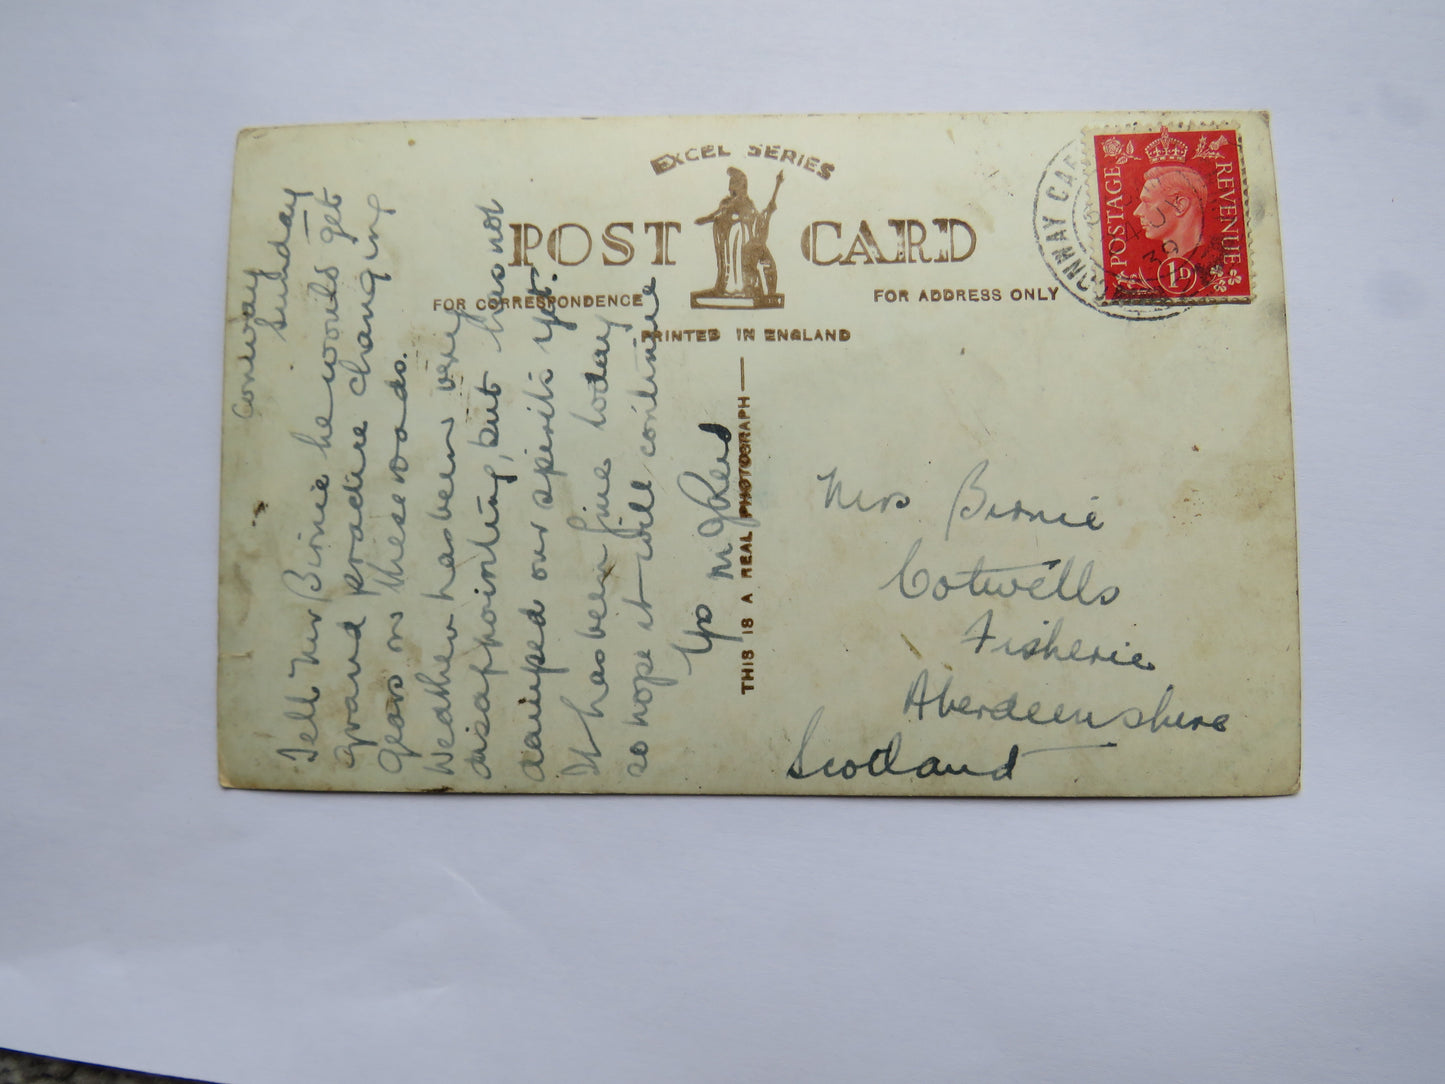 EXCEL SERIES
POST CARD
FOR CORRESPONDENCE
FOR ADDRESS ONLY
PRINTED IN ENGLAND
THIS IS A REAL PHOTOGRAPH
POSTAGE
REVENUE
1D
CONWAY CAE
39
Conway
Sunday
Tell Mr Birnie he would get
grand practice changing
gears on these roads.
Weather has been very
disappointing, but has not
damped our spirits yet.
It has been fine today
so hope it will continue
Yrs
Mrs Birnie
Cotwells
Fisherie
Aberdeenshire
Scotland